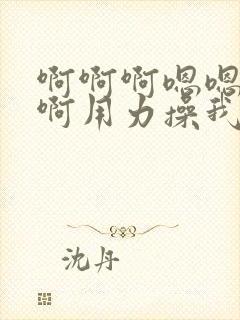 啊啊啊嗯嗯
啊用力操我
沈丹